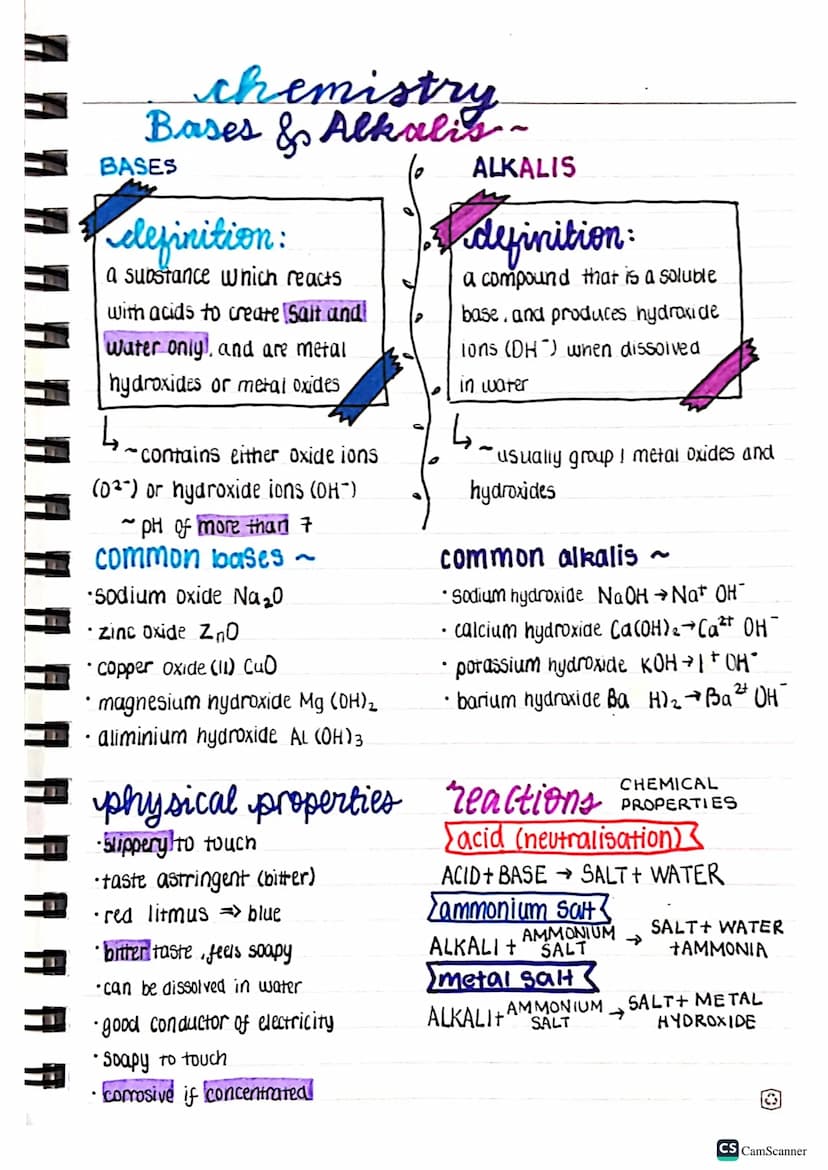 chemistry
Bases & Alkalis~
BASES
definition:
a substance which reacts
with acids to create salt and
water only, and are metal
hydroxides or metal oxides
~contains either oxide ions
(O²⁻) or hydroxide ions (OH⁻)
~ pH of more than 7
ALKALIS
definition:
a compound that is a soluble
base, and produces hydroxide
ions (OH⁻) when dissolved
in water
~usually group 1 metal oxides and
hydroxides
common bases ~
·sodium oxide Na₂O
·zinc oxide ZnO
·copper oxide (II) CuO
·magnesium hydroxide Mg (OH)₂
·aliminium hydroxide AL (OH)₃
common alkalis ~
·sodium hydroxide NaOH →Na⁺ OH⁻
·calcium hydroxide Ca(OH)₂→Ca²⁺ OH⁻
·potassium hydroxide KOH→1⁺ OH⁻
·barium hydroxide Ba H)₂→Ba²⁺ OH⁻
physical properties
·slippery to touch
·taste astringent (bitter)
·red litmus => blue
·bitter taste, feels soapy
·can be dissolved in water
·good conductor of electricity
·soapy to touch
·corrosive if concentrated
reactions CHEMICAL
PROPERTIES
acid (neutralisation)
ACID + BASE → SALT + WATER
ammonium salt
ALKALI + AMMONIUM SALT → SALT + WATER + AMMONIA
metal salt
ALKALI + AMMONIUM SALT → SALT + METAL HYDROXIDE
CS CamScanner